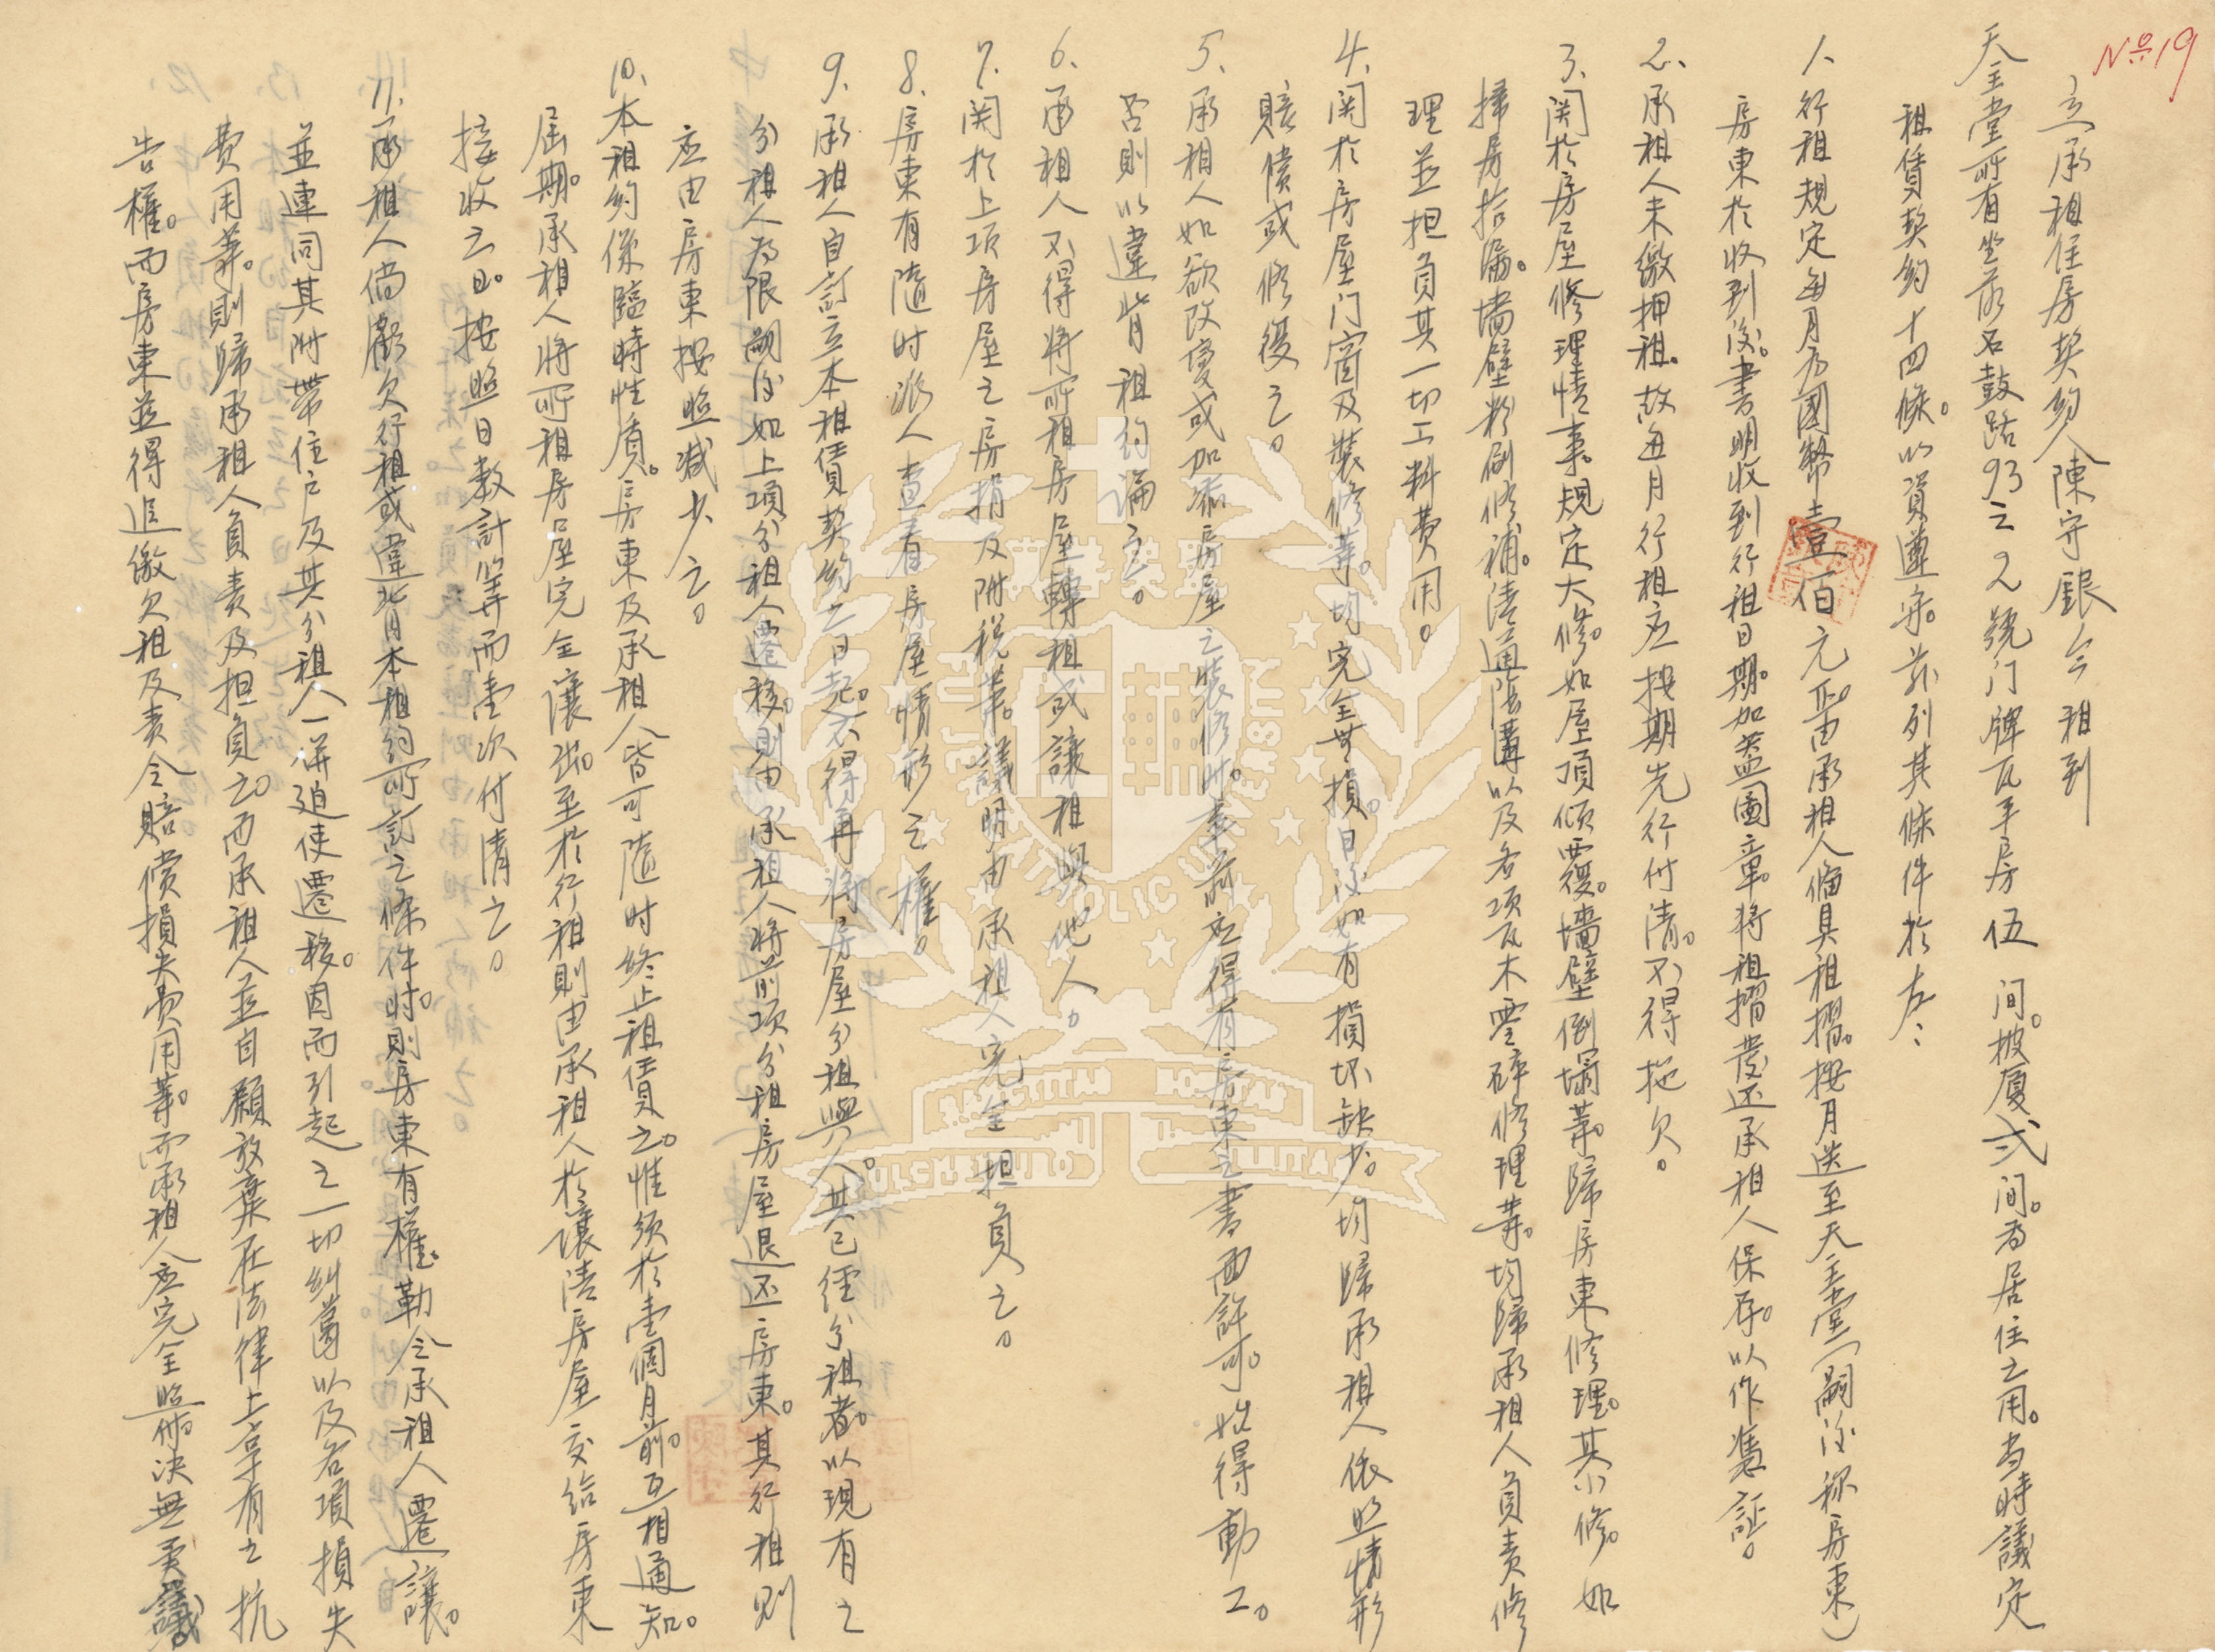 No.19
立承租住房契約人陳守銀今租到
天主堂所有坐落石鼓路93之2號门牌瓦平房伍间。披厦弍间。為居住之用。当時議定
租賃契約十四條。以資遵守。兹列其條件於左：
1.行租規定每月为國幣壹佰元正。由承租人俻具租摺。按月送至天主堂（嗣後称房東）
房東於收到後。書明收到行租日期。加盖圖章。将租摺發还承租人保存。以作憑証。
2.承租人未繳押租。故每月行租应按期先行付清。不得拖欠。
3.関於房屋修理情事。規定大修。如屋頂傾覆。墻壁倒塌等。歸房東修理。其小修。如
掃房拾漏。墙壁粉刷修補。清通陰溝以及各项瓦木零碎修理等。均歸承租人負责修
理並担負其一切工料費用。
4.関於房屋门窗及裝修等。均完全無損。日後如有損坏缺少。均歸承租人依照情形
賠償或修復之。
5.承租人如欲改变或加添房屋之裝修时。事前应得有房東之書面許可。始得動工。
否則以違背租约論之。
6.承租人不得將所租房屋轉租或讓租與他人。
7.関於上项房屋之房捐及附税等。議明由承租人完全担負之。
8.房東有隨时派人查看房屋情形之權。
9.承租人自訂立本租賃契约之日起。不得再将房屋分租與人。其已經分租者。以現有之
分租人為限。嗣後如上項分租人遷移。則由承租人將前项分租房屋退还房東。其行租則
应由房東按照减少之。
10.本租約係臨時性質。房東及承租人皆可隨时终止租賃之。惟须於壹個月前。互相通知。
屆期。承租人將所租房屋完全讓出。至於行租則由承租人於讓清房屋交给房東
接收之日。按照日数計算而壹次付清之。
11.承租人倘虧欠行租或違背本租约所訂之條件时。則房東有權。勒令承租人遷讓。
並連同其附带住户及其分租人一併迫使遷移。因而引起之一切糾葛以及各項損失
費用等。則歸承租人負责及担負之。而承租人並自願放棄在法律上享有之抗
告權。而房東並得追繳欠租及责令賠償損失費用等。而承租人应完全照办。决無異議。